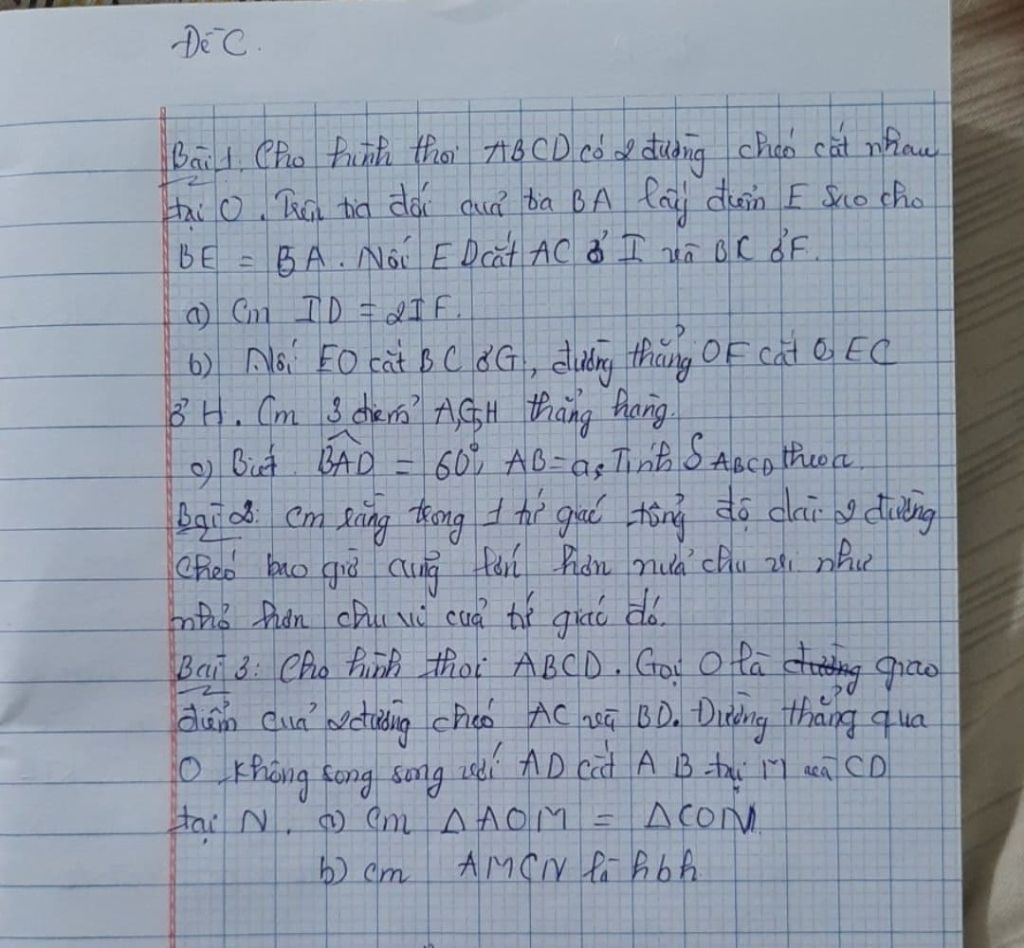 Đề C.
Bài 1. Cho hình thoi ABCD có 2 đường chéo cắt nhau
tại O. Trên tia đối của tia BA lấy điểm E sao cho
BE = BA. Nối ED cắt AC ở I và BC ở F.
a) Cm ID = 2IF.
b) Nối EO cắt BC ở G, đường thẳng OF cắt EC
ở H. Cm 3 điểm A,G,H thẳng hàng.
c) Biết BAD = 60°, AB = a, Tính S ABCD theo a.
Bài 2: Cm rằng trong 1 tứ giác tổng độ dài 2 đường
chéo bao giờ cũng lớn hơn nửa chu vi như
nhỏ hơn chu vi của tứ giác đó.
Bài 3: Cho hình thoi ABCD. Gọi O là đường giao
điểm của 2 đường chéo AC và BD. Đường thẳng qua
O không song song với AD cắt AB tại M và CD
tại N. a) Cm ΔAOM = ΔCON.
b) Cm AMCN là hbh